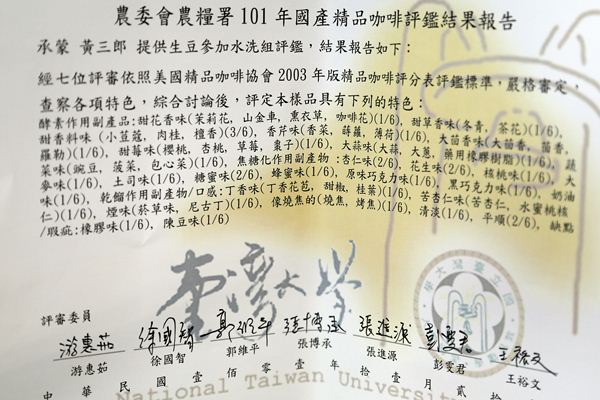 農委會農糧署101年國產精品咖啡評鑑結果報告
承蒙 黃三郎 提供生豆參加水洗組評鑑，結果報告如下：
經七位評審依照美國精品咖啡協會2003年版精品咖啡評分表評鑑標準，嚴格審定，
查察各項特色，綜合討論後，評定本樣品具有下列的特色：
酵素作用副產品：甜花香味(茉莉花, 山金車, 熏衣草, 咖啡花)(1/6), 甜草香味(冬青, 茶花)(1/6),
甜香料味 (小荳蔻, 肉桂, 檀香)(3/6), 香芹味(香菜, 薜蘿, 薄荷)(1/6), 大茴香味(大茴香, 茴香,
羅勒)(1/6), 甜莓味(櫻桃, 杏桃, 草莓, 棗子)(1/6), 大蒜味(大蒜, 大蔥, 藥用橡膠樹脂)(1/6), 蔬
菜味(豌豆, 菠菜, 包心菜)(1/6), 焦糖化作用副產物：杏仁味(2/6), 花生味(2/6), 核桃味(1/6), 大
麥味(1/6), 土司味(1/6), 糖蜜味(2/6), 蜂蜜味(1/6), 原味巧克力味(1/6), 黑巧克力味(1/6), 奶油
味(1/6), 乾餾作用副產物/口感:丁香味(丁香花苞, 甜椒, 桂葉)(1/6), 苦杏仁味(苦杏仁, 水蜜桃核
仁)(1/6), 煙味(菸草味, 尼古丁)(1/6), 像燒焦的(燒焦, 烤焦)(1/6), 清淡(1/6), 平順(2/6), 缺點
/瑕疵:橡膠味(1/6), 陳豆味(1/6)
臺灣大學
國立臺灣大學
評審委員
游惠茹 徐國智 郭維平 張博承 張進源 彭雯君 王裕文
游惠茹 徐國智 郭維平 張博承 張進源 彭雯君 王裕文
中華民國壹佰零壹年拾壹月貳拾
National Taiwan Universi